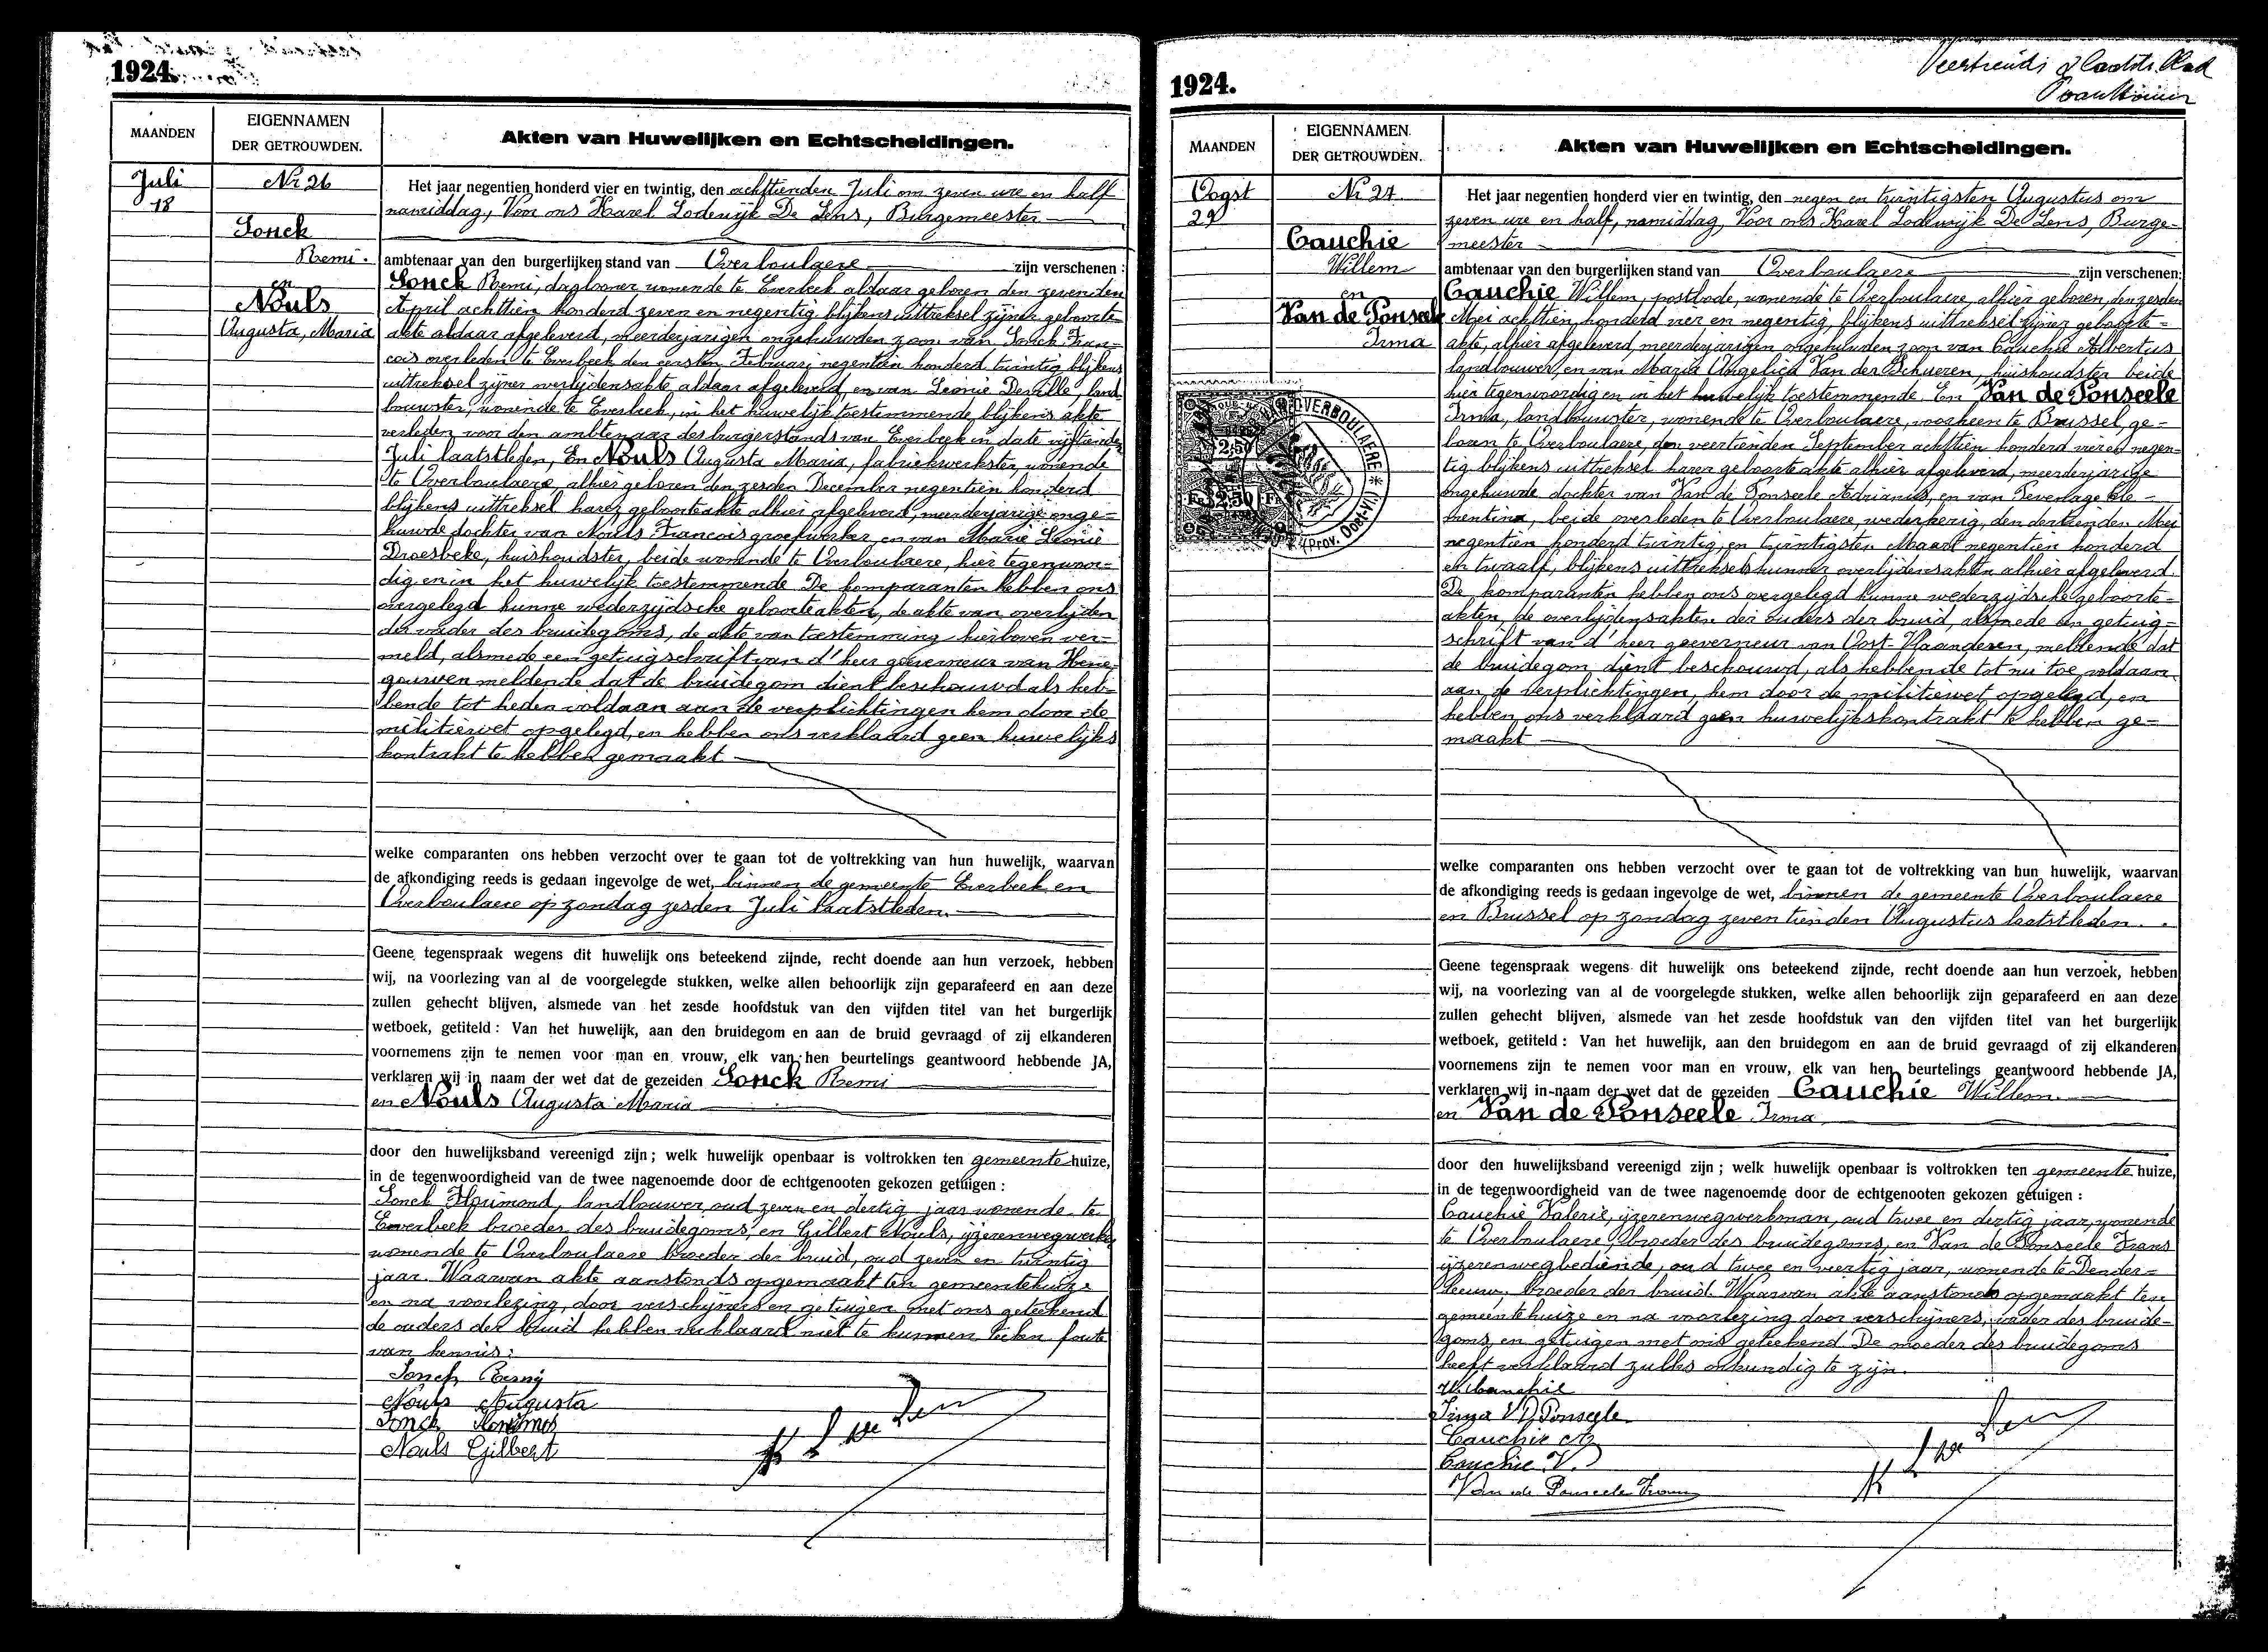 1924.
MAANDEN
EIGENNAMEN
DER GETROUWDEN.
Akten van Huwelijken en Echtscheidingen.
Juli
18
Nr 26
Sonck
Remi.
en
Nouls
Augusta, Maria
Het jaar negentien honderd vier en twintig, den achttienden Juli om zeven ure en half
namiddag, Voor ons Karel Lodewijk De Lens, Burgemeester
ambtenaar van den burgerlijken stand van Overboulaere zijn verschenen:
Sonck Remi, daglooner wonende te Everbeek aldaar geboren den zevenden
April achttien honderd zeven en negentig blijkens uittreksel zijner geboorte-
akte aldaar afgeleverd, meerderjarigen ongehuwden zoon van Sonck Fran-
cois overleden te Everbeek den eersten Februari negentien honderd twintig blijkens
uittreksel zijner overlijdensakte aldaar afgeleverd, en van Leonie Deville, land-
bouwster, wonende te Everbeek, in het huwelijk toestemmende, blijkens akte
verleden voor den ambtenaar des burgerstands van Everbeek in date vijftienden
Juli laatstleden, En Nouls Augusta Maria, fabriekwerkster, wonende
te Overboulaere, alhier geboren den zesden December negentien honderd
blijkens uittreksel harer geboorteakte alhier afgeleverd, meerderjarige onge-
huwde dochter van Nouls Francois groefwerker, en van Marie Leonie
Droesbeke, huishoudster, beide wonende te Overboulaere, hier tegenwoor-
dig en in het huwelijk toestemmende. De komparanten hebben ons
overgelegd hunne wederzijdsche geboorteakten, de akte van overlijden
der vader des bruidegoms, de akte van toestemming hierboven ver-
meld, alsmede een getuigschrift van d'heer goeverneur van Hene-
gouwen meldende dat de bruidegom dient beschouwd als heb-
bende tot heden voldaan aan de verplichtingen hem door de
militiewet opgelegd, en hebben ons verklaard geen huwelijks
kontrakt te hebben gemaakt
welke comparanten ons hebben verzocht over te gaan tot de voltrekking van hun huwelijk, waarvan
de afkondiging reeds is gedaan ingevolge de wet, binnen de gemeente Everbeek en
Overboulaere op zondag zesden Juli laatstleden.
Geene tegenspraak wegens dit huwelijk ons beteekend zijnde, recht doende aan hun verzoek, hebben
wij, na voorlezing van al de voorgelegde stukken, welke allen behoorlijk zijn geparafeerd en aan deze
zullen gehecht blijven, alsmede van het zesde hoofdstuk van den vijfden titel van het burgerlijk
wetboek, getiteld: Van het huwelijk, aan den bruidegom en aan de bruid gevraagd of zij elkanderen
voornemens zijn te nemen voor man en vrouw, elk van hen beurtelings geantwoord hebbende JA,
verklaren wij in naam der wet dat de gezeiden Sonck Remi
en Nouls Augusta Maria
door den huwelijksband vereenigd zijn; welk huwelijk openbaar is voltrokken ten gemeente huize,
in de tegenwoordigheid van de twee nagenoemde door de echtgenooten gekozen getuigen:
Sonck Florimond, landbouwer, oud zeven en dertig jaar wonende te
Everbeek broeder des bruidegoms, en Gilbert Nouls, ijzerenwegwerker
wonende te Overboulaere broeder der bruid, oud zeven en twintig
jaar. Waarvan akte aanstonds opgemaakt ten gemeentehuize
en na voorlezing, door verschijners en getuigen met ons geteekend
de ouders der bruid hebben verklaard niet te kunnen teeken foute
van kennis:
Sonck Remi
Nouls Augusta
Sonck
Nouls Gilbert
K L De Lens
1924.
MAANDEN
EIGENNAMEN
DER GETROUWDEN.
Akten van Huwelijken en Echtscheidingen.
Oogst
29
Nr 27
Cauchie
Willem
en
Van de Ponseele
Irma
OVERBOULAERE
2.50
Fr 2.50 Fr
(Prov. Oost-Vl.)
Het jaar negentien honderd vier en twintig, den negen en twintigsten Augustus om
zeven ure en half, namiddag, Voor ons Karel Lodewijk De Lens, Burge-
meester
ambtenaar van den burgerlijken stand van Overboulaere zijn verschenen:
Cauchie Willem, postbode, wonende te Overboulaere, alhier geboren, den zesden
Mei achttien honderd vier en negentig, blijkens uittreksel zijner geboorte-
akte, alhier afgeleverd, meerderjarigen ongehuwden zoon van Cauchie Albertus
landbouwer, en van Maria Angelica Van der Schueren, huishoudster beide
hier tegenwoordig en in het huwelijk toestemmende. En Van de Ponseele
Irma, landbouwster, wonende te Overboulaere, voorheen te Brussel, ge-
boren te Overboulaere, den veertienden September achttien honderd vier en negen-
tig blijkens uittreksel harer geboorteakte alhier afgeleverd, meerderjarige
ongehuwde dochter van Van de Ponseele Adrianus, en van Tevenage Cle-
mentina, beide overleden te Overboulaere, wederkerig, den dertienden Mei
negentien honderd twintig, en twintigsten Maart negentien honderd
en twaalf, blijkens uittreksels hunner overlijdensakten alhier afgeleverd.
De komparanten hebben ons overgelegd hunne wederzijdsche geboorte-
akten, de overlijdensakten der ouders der bruid, alsmede een getuig-
schrift van d'heer goeverneur van Oost-Vlaanderen, meldende dat
de bruidegom dient beschouwd, als hebbende tot nu toe voldaan
aan de verplichtingen, hem door de militiewet opgelegd, en
hebben ons verklaard geen huwelijkskontrakt te hebben ge-
maakt
welke comparanten ons hebben verzocht over te gaan tot de voltrekking van hun huwelijk, waarvan
de afkondiging reeds is gedaan ingevolge de wet, binnen de gemeente Overboulaere
en Brussel op zondag zeventienden Augustus laatstleden.
Geene tegenspraak wegens dit huwelijk ons beteekend zijnde, recht doende aan hun verzoek, hebben
wij, na voorlezing van al de voorgelegde stukken, welke allen behoorlijk zijn geparafeerd en aan deze
zullen gehecht blijven, alsmede van het zesde hoofdstuk van den vijfden titel van het burgerlijk
wetboek, getiteld: Van het huwelijk, aan den bruidegom en aan de bruid gevraagd of zij elkanderen
voornemens zijn te nemen voor man en vrouw, elk van hen beurtelings geantwoord hebbende JA,
verklaren wij in naam der wet dat de gezeiden Cauchie Willem.
en Van de Ponseele Irma
door den huwelijksband vereenigd zijn; welk huwelijk openbaar is voltrokken ten gemeente huize,
in de tegenwoordigheid van de twee nagenoemde door de echtgenooten gekozen getuigen:
Cauchie Valerie, ijzerenwegwerkman, oud twee en dertig jaar, wonende
te Overboulaere, broeder des bruidegoms, en Van de Ponseele Frans
ijzerenwegbediende, oud twee en veertig jaar, wonende te Dender-
leeuw, broeder der bruid. Waarvan akte aanstonds opgemaakt ten
gemeentehuize en na voorlezing door verschijners, vader des bruide-
goms, en getuigen met ons geteekend. De moeder des bruidegoms
heeft verklaard zulks onkundig te zijn.
W. Cauchie
Irma V D Ponseele
Cauchie A
Cauchie V.
Van de Ponseele Frans
K L De Lens